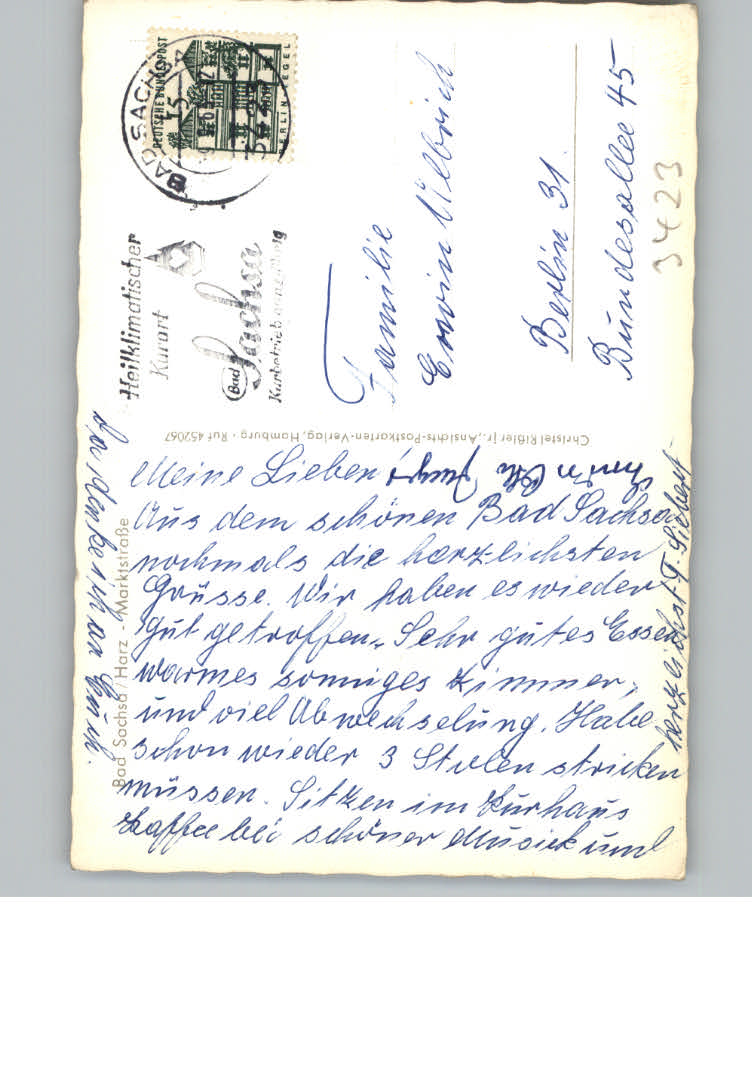 DEUTSCHE BUNDESPOST
BERLIN TEGEL
BAD SACHSA
Heilklimatischer
Kurort
Bad Sachsa
Familie
Erwin
Berlin 31.
Bundesallee 45
3423
Christel Rißler jr., Ansichts-Postkarten-Verlag, Hamburg · Ruf 452067
Bad Sachsa / Harz - Marktstraße
Meine Lieben!
Aus dem schönen Bad Sachsa
nochmals die herzlichsten
Grüsse. Wir haben es wieder
gut getroffen. Sehr gutes Essen
warmes sonniges Zimmer,
und viel Abwechselung. Habe
schon wieder 3 Stolen stricken
müssen. Sitzen im Kurhaus
Kaffee bei schöner Musick und
herzlichst